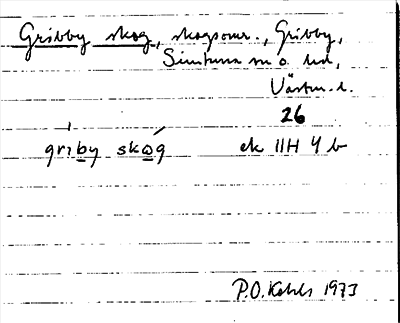 Gribby skog, skogsomr., Gribby,
Simtuna sn o. hd,
Västm. l.
26
griby skog ek 11H 4 b
P.O. 1973